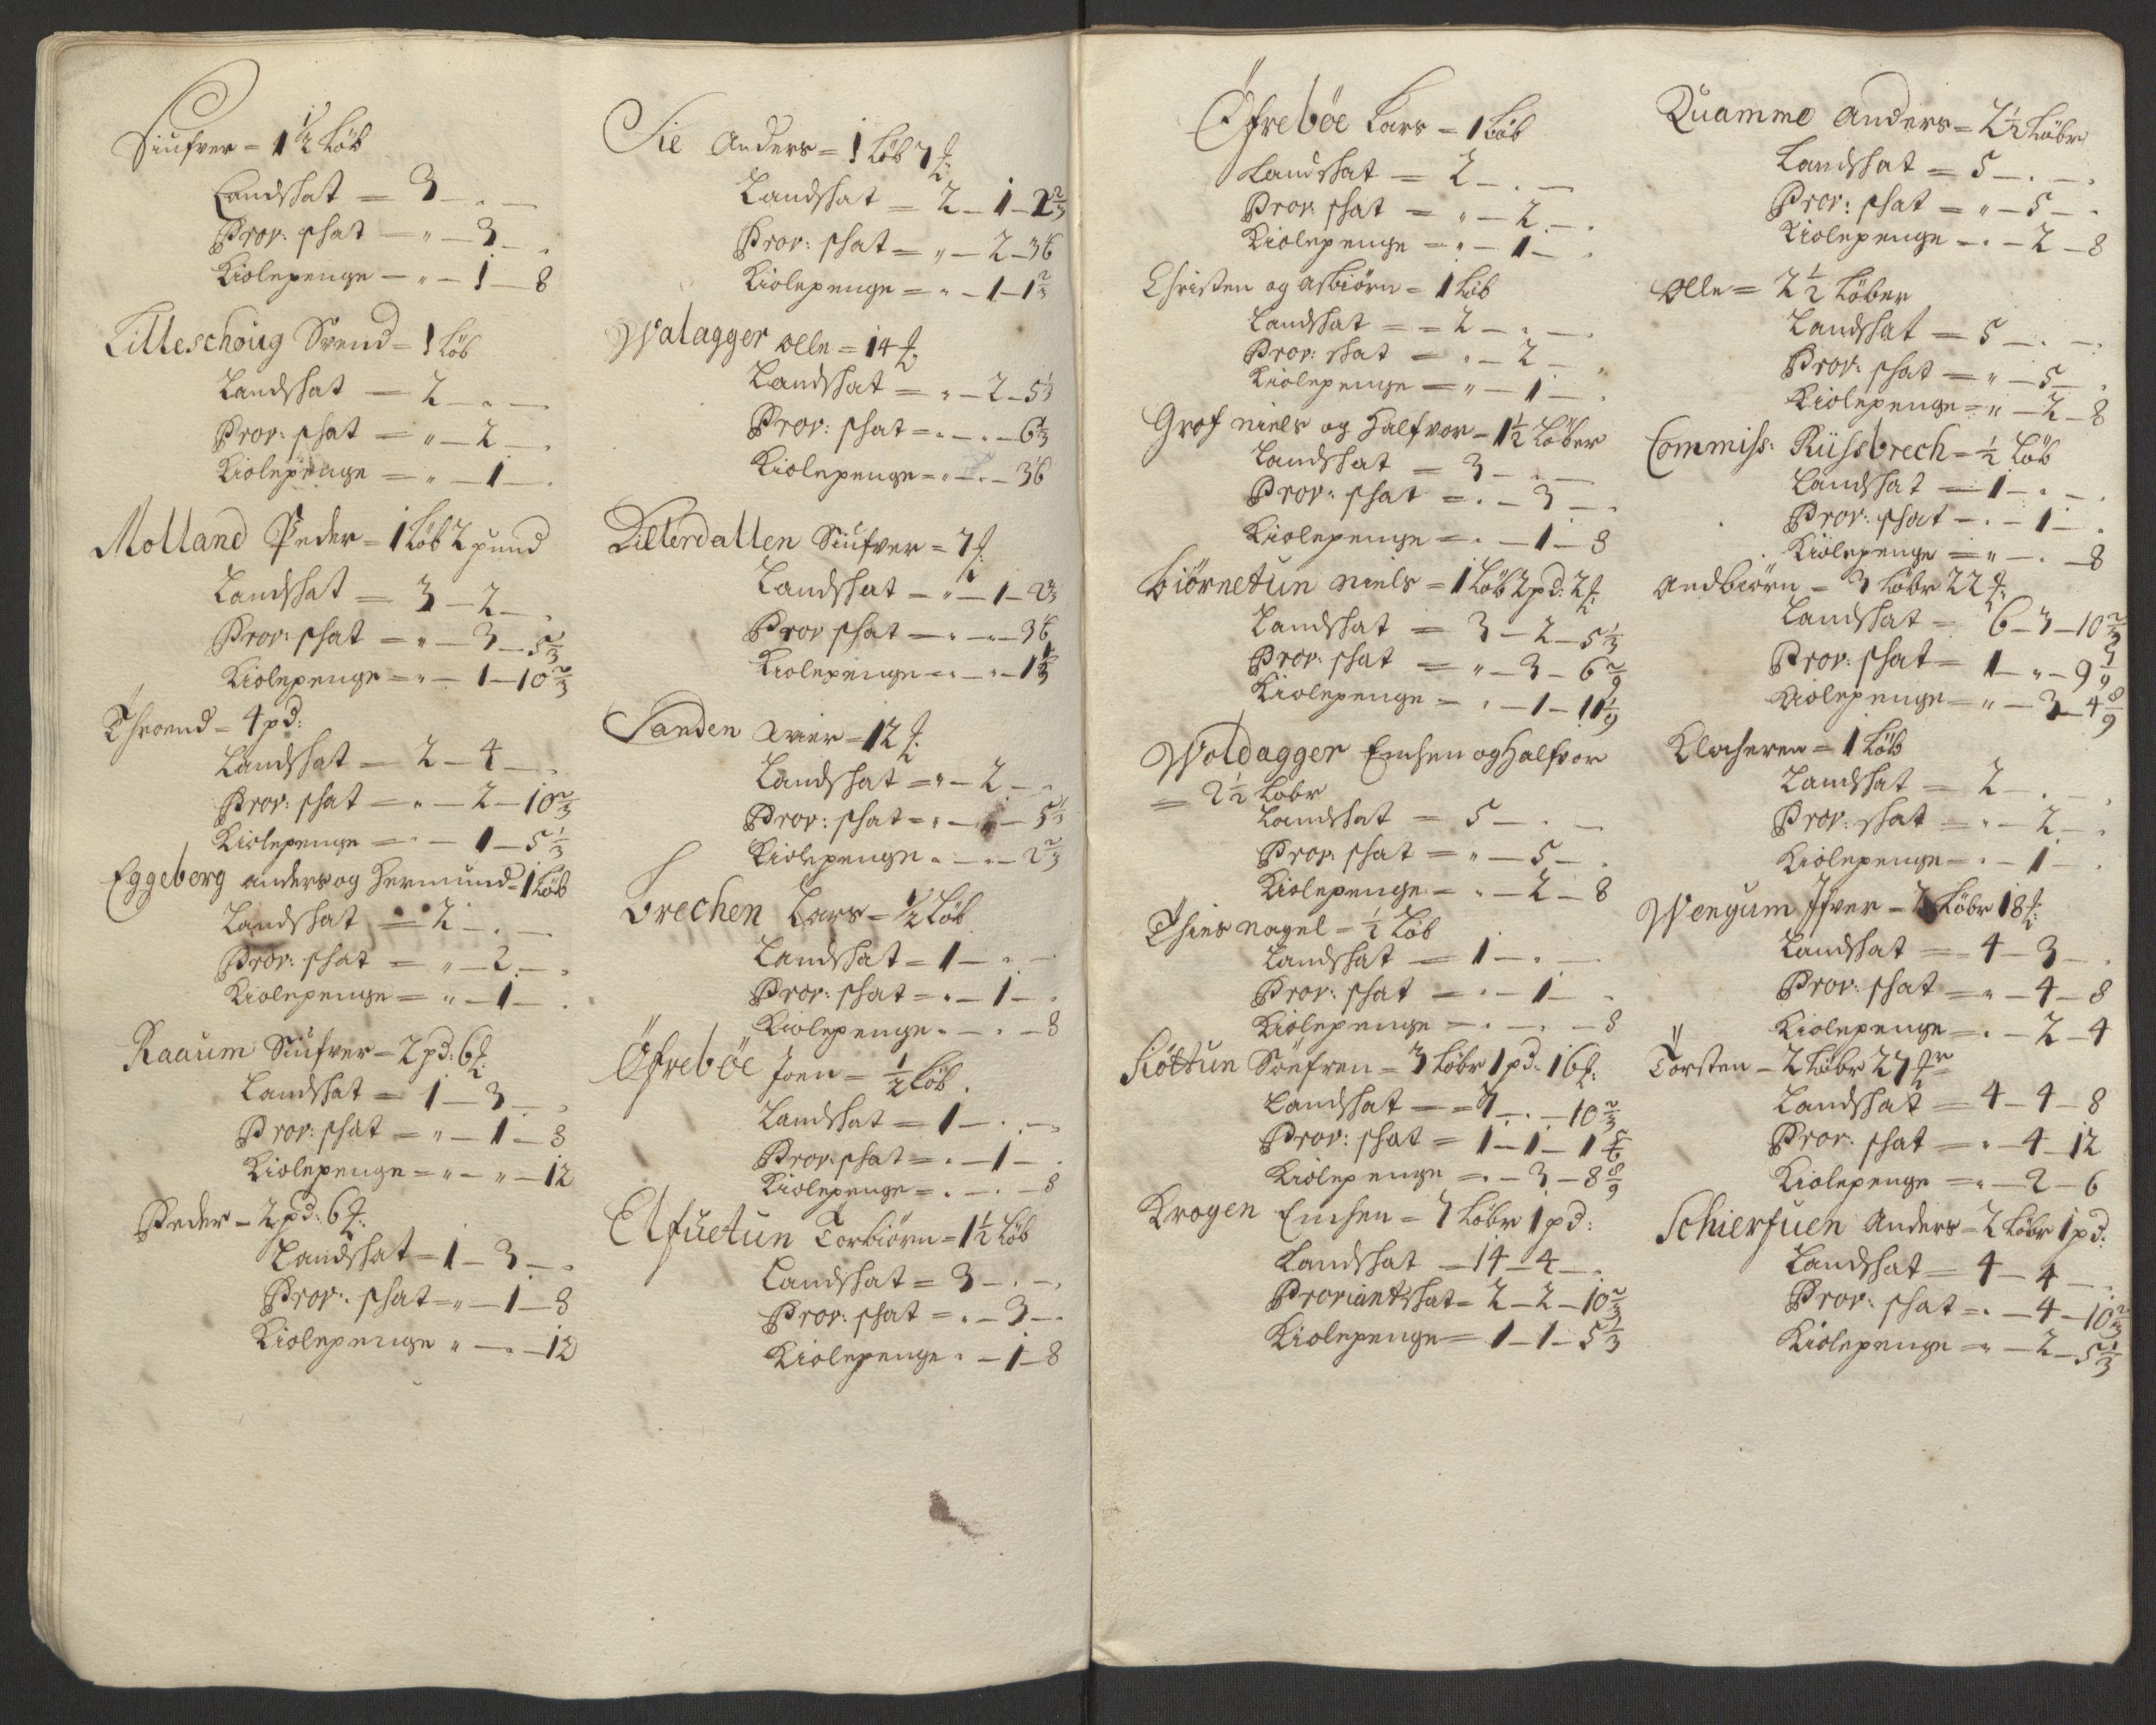 Siufver = 1 1/2 Løb
Landskat = 3 - . -
Prov: skat - " - 3 - .
Kiolepenge - " - 1 - 8
Litleschoug Svend = 1 Løb
Landskat - 2 - . -
Prov: skat = " - 2 - .
Kiolepenge = " - 1 - .
Molland Peder = 1 Løb 2 pund
Landskat - 3 - 2 - .
Prov: skat = " - 3 - 5 1/3
Kiolepenge = " - 1 - 10 2/3
Throend = 4 pd:
Landskat - 2 - 4 - .
Prov: skat = " - 2 - 10 2/3
Kiolepenge = " - 1 - 5 1/3
Eggeberg anders og Hermund = 1 Løb
Landskat = 2 - . -
Prov: skat = " - 2 - .
Kiolepenge = " - 1 - .
Raaum Siufver = 2 pd: 6 ℔:
Landskat = 1 - 3 - .
Prov: skat = " - 1 - 8
Kiolepenge = " - " - 12
Peder = 2 pd: 6 ℔:
Landskat = 1 - 3 - .
Prov: skat = " - 1 - 8
Kiolepenge " - . - 12
Sie Anders = 1 Løb 7 ℔:
Landskat = 2 - 1 - 2 2/3
Prov: skat = " - 2 - 3 6
Kiolepenge = " - 1 - 1 2/3
Walagger Olle = 14 ℔:
Landskat = " - 2 - 5 1/3
Prov: skat = . - . - 6 2/3
Kiolepenge = " - . - 3 6
Lilterdallen Siufver = 7 ℔:
Landskat - " - 1 - 2 2/3
Prov skat - . - . - 3 6
Kiolepenge - . - . - 1 2/3
Sanden Arier = 12 ℔:
Landskat = " - 2 - .
Prov: skat = . - . - 5 1/3
Kiolepenge . - . - 2 2/3
Brechen Lars = 1/2 Løb
Landskat = 1 - . -
Prov: skat = . - 1 - .
Kiolepenge . - . - 8
Öfrebøe Joen = 1/2 Løb.
Landskat = 1 - . -
Prov: skat = . - 1 - .
Kiolepenge = . - . - 8
Elfuetun Torbiørn = 1 1/2 Løb
Landskat = 3 - . - .
Prov: skat = . - 3 - .
Kiolepenge . - 1 - 8
Öfrebøe Lars = 1 Løb
Landskat = 2 - . -
Prov: skat = " - 2 - .
Kiolepenge = . - 1 - .
Christen og Asbiørn = 1 Løb
Landskat = 2 - . - .
Prov: skat = . - 2 - .
Kiolepenge = " - 1 - .
Grof niels og Halfvor = 1 1/2 Løber
Landskat = 3 - . -
Prov: skat = . - 3 - .
Kiolepenge = . - 1 - 8
Biørnetun niels = 1 Løb 2 pd: 2 ℔:
Landskat = 3 - 2 - 5 1/3
Prov: skat = " - 3 - 6 2/9
Kiolepenge = . - 1 - 11 1/9
Woldagger Emken og Halfvor
= 2 1/2 Løbr
Landskat = 5 - . -
Prov: skat = " - 5 - .
Kiolepenge = . - 2 - 8
Thies nagel = 1/2 Løb
Landskat = 1 - . -
Prov: skat = . - 1 - .
Kiolepenge = . - . - 8
Slottun Søefren = 3 Løbr 1 pd: 16 ℔:
Landskat = 7 - . - 10 2/3
Prov: skat = 1 - 1 - 1
Kiolepenge = . - 3 - 8 8/9
Krogen Emken = 7 Løbr 1 pd:
Landskat = 14 - 4 - .
Proviantskat = 2 - 2 - 10 2/3
Kiolepenge = 1 - 1 - 5 1/3
Quamme Anders = 2 1/2 Løbr
Landskat = 5 - . - .
Prov: skat = " - 5 - .
Kiolepenge - . - 2 - 8
Olle = 2 1/2 Løber
Landskat = 5 - . - .
Prov: skat = " - 5 - .
Kiolepenge = " - 2 - 8
Commiss: Rüssbrech = 1/2 Løb
Landskat - 1 - . - .
Prov: skat - . - 1 - .
Kiolepenge = " - . - 8
Andbiørn = 3 Løbr 22 ℔:
Landskat = 6 - 3 - 10 2/3
Prov: skat = 1 - " - 9 7/9
Kiolepenge = " - 3 - 4 8/9
Klocheren = 1 Løb
Landskat = 2 - . - .
Prov: skat = . - 2 - .
Kiolepenge = . - 1 - .
Wengum Ifver = 2 Løbr 18 ℔:
Landskat = 4 - 3 - .
Prov: skat = " - 4 - 8
Kiolepenge = . - 2 - 4
Torsten = 2 Løbr 27 ℔r
Landskat = 4 - 4 - 8
Prov: skat = . - 4 - 12
Kiolepenge = " - 2 - 6
Schierfuen Anders = 2 Løbr 1 pd:
Landskat = 4 - 4 - .
Prov: skat = . - 4 - 10 2/3
Kiolepenge = " - 2 - 5 1/3